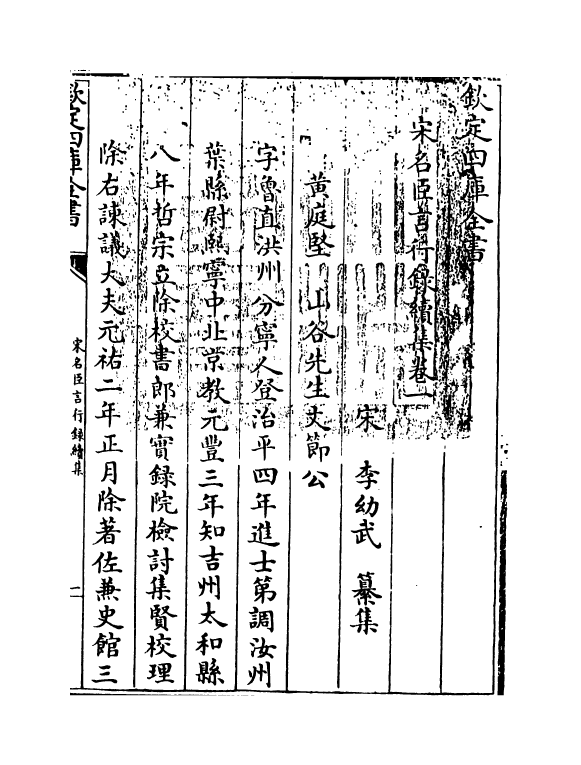 欽定四庫全書
宋名臣言行録續集卷一
宋 李幼武 纂集
黄庭堅 山谷先生文節公
字魯直洪州分寧人登治平四年進士第調汝州
葉縣尉熙寧中北京教元豐三年知吉州太和縣
八年哲宗立除校書郎兼實録院檢討集賢校理
除右諫議大夫元祐二年正月除著佐兼史館三
欽定四庫全書
宋名臣言行録續集